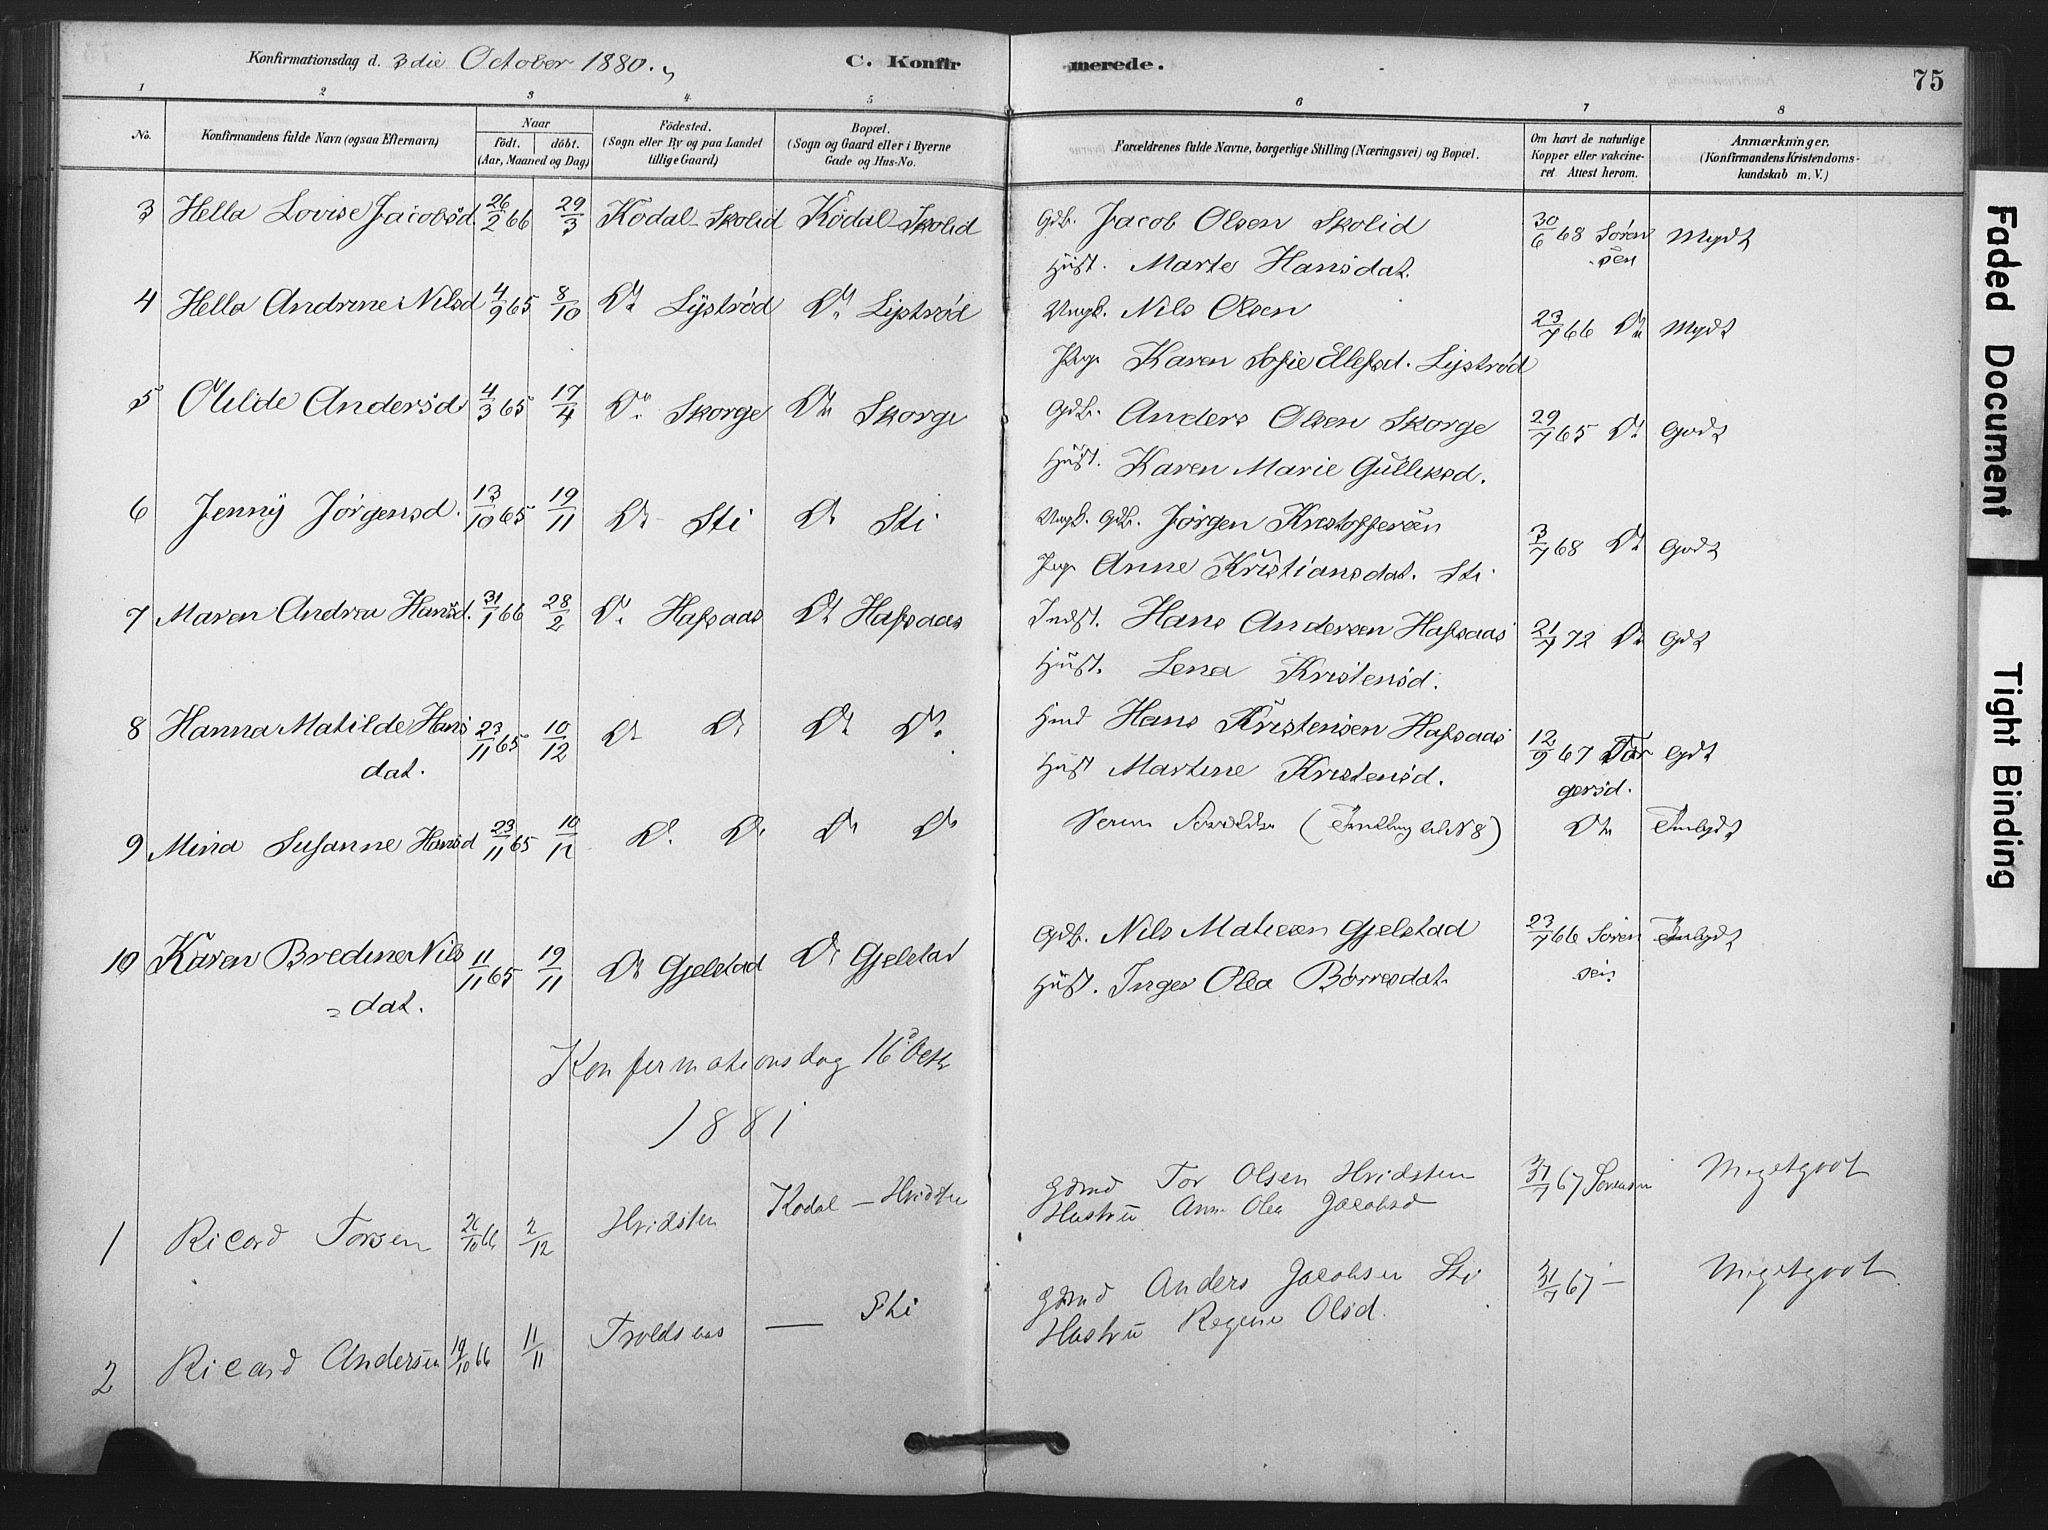 Konfirmationsdag d. 3die October 1880. C. Konfir merede. 75
1 2 3 4 5 6 7 8
No. Konfirmandens fulde Navn (ogsaa Efternavn) Naar født. døbt. (Aar, Maaned og Dag) Fødested. (Sogn eller By og paa Landet tillige Gaard) Bopæl. (Sogn og Gaard eller i Byerne Gade og Hus-No. Forældrenes fulde Navne, borgerlige Stilling (Næringsvei) og Bopæl. Om havt de naturlige Kopper eller vakcineret Attest herom. Anmærkninger. (Konfirmandens Kristendomskundskab m. V.)
3 Hella Lovise Jacobsd 26/2 66 29/3 Kodal - Skolid Kodal - Skolid Gdb. Jacob Olsen Skolid 30/6 68 Søren Mgdt
Hust. Marte Hansdat. sen
4 Hella Andrine Nilsd 4/9 65 8/10 Do Lystrød Do Lystrød Ungk. Nils Olsen 23/7 66 Do Mgdt
Pige Karen Sofie Ellefsd. Lystrød
5 Olilde Andersd 4/3 65 17/4 Do Skorge Do Skorge Gdb. Anders Olsen Skorge 29/7 65 Do Godt
Hust. Karen Marie Gulliksd.
6 Jenny Jørgensd. 13/10 65 19/11 Do Sti Do Sti Ungk. Gdb. Jørgen Kristoffersen 3/7 68 Do Godt
Pige Anne Kristiansdat. Sti
7 Maren Andrea Hansd. 31/1 66 28/2 Do Hafsaas Do Hafsaas Indst. Hans Andersen Hafsaas 21/7 72 Do Gdt
Hust. Lena Kristensd.
8 Hanna Matilde Hans 23/11 65 10/12 Do Do Do Do Hmd Hans Kristensen Hafsaas 12/9 67 Tor Gdt
dat. Hust Martine Kristensd. gersd.
9 Mina Susanne Hansd 23/11 65 10/12 Do Do Do Do Forældre (Tvilling til N 8) Do
10 Karen Bredine Nils 11/11 65 19/11 Do Gjelstad Do Gjelstad Gdb. Nils Matisen Gjelstad 23/7 66 Søren
=dat. Hust. Inger Olea Børresdat. sen
Konfirmationsdag 16 Octb
1881
1 Ricard Torsen 26/10 66 2/12 Hvidsten Kodal - Hvidsten Gdmd Tor Olsen Hvidsten 31/7 67 Sørensen Megetgodt
Hustru Anne Olea Jacobsd
2 Ricard Andersen 19/10 66 11/11 Troldsaas — Sti Gdmd Anders Jacobsen Sti 31/7 67 — Megetgodt
Hustru Regine Olsd.
Faded Document
Tight Binding